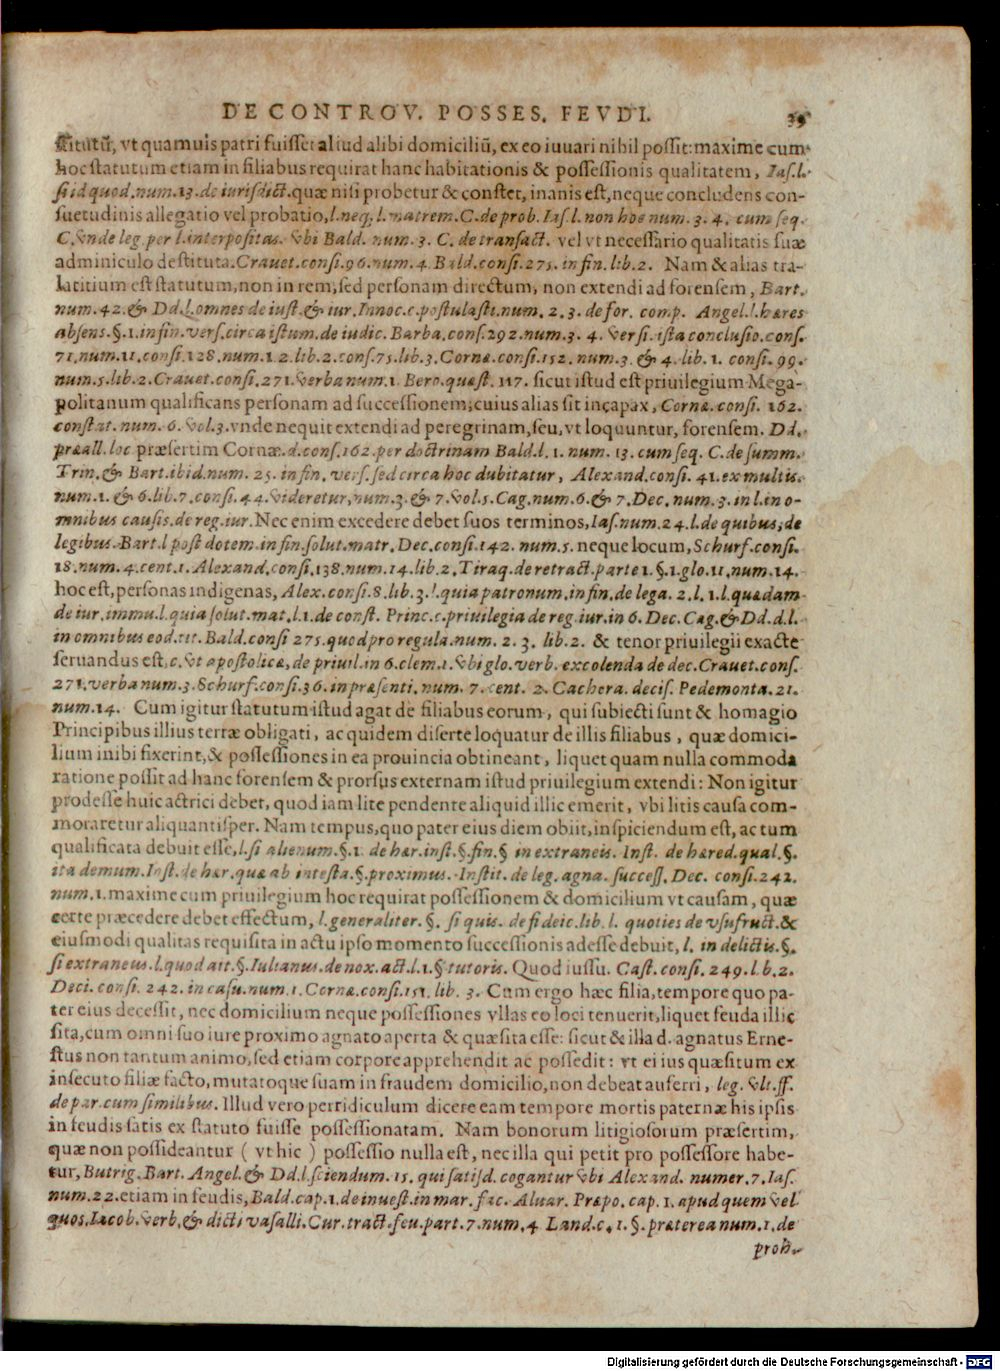 DE CONTROV. POSSES. FEVDI. 39
stitutũ, vt quamuis patri fuisset aliud alibi domiciliũ, ex eo iuuari nihil possit: maxime cum
hoc statutum etiam in filiabus requirat hanc habitationis & possessionis qualitatem, Ias. l.
si id quod. num. 13. de iurisdict. quæ nisi probetur & constet, inanis est, neque concludens con-
suetudinis allegatio vel probatio, l. neq; l. matrem. C. de prob. Ias. l. non hoc num. 3. 4. cum seq.
C. vnde leg. per l. interpositas. vbi Bald. num. 3. C. de transact. vel vt necessario qualitatis suæ
adminiculo destituta. Crauet. consi. 96. num. 4. Bald. consi. 275. in fin. lib. 2. Nam & alias tra-
latitium est statutum, non in rem, sed personam directum, non extendi ad forensem, Bart.
num. 42. & Dd. l. omnes de iust. & iur. Innoc. c. postulasti. num. 2. 3. de for. comp. Angel. l. hæres
absens. §. 1. in fin. vers. circa istum. de iudic. Barba. cons. 292. num. 3. 4. versi. ista conclusio. cons.
71. num. 11. consi. 128. num. 1. 2. lib. 2. cons. 75. lib. 3. Cornæ. consi. 152. num. 3. & 4. lib. 1. consi. 99.
num. 5. lib. 2. Crauet. consi. 271. verba num. 1. Bero. quæst. 117. sicut istud est priuilegium Mega-
politanum qualificans personam ad successionem, cuius alias sit incapax, Cornæ. consi. 162.
constat. num. 6. vol. 3. vnde nequit extendi ad peregrinam, seu, vt loquuntur, forensem. Dd.
præall. loc præsertim Cornæ. d. cons. 162. per doctrinam Bald. l. 1. num. 13. cum seq. C. de summ.
Trin. & Bart. ibid. num. 25. in fin. vers. sed circa hoc dubitatur, Alexand. consi. 41. ex multis.
num. 1. & 6. lib. 7. consi. 44. videretur, num. 3. & 7. vol. 5. Cag. num. 6. & 7. Dec. num. 3. in l. in o-
mnibus causis. de reg. iur. Nec enim excedere debet suos terminos, Ias. num. 24. l. de quibus, de
legibus. Bart. l post dotem. in fin. solut. matr. Dec. consi. 142. num. 5. neque locum, Schurf. consi.
18. num. 4. cent. 1. Alexand. consi. 138. num. 14. lib. 2. Tiraq. de retract. parte 1. §. 1. glo. 11. num. 14.
hoc est, personas indigenas, Alex. consi. 8. lib. 3. l. quia patronum. in fin. de lega. 2. l. 1. l. quædam
de iur. immu. l. quia solut. mat. l. 1. de const. Princ. c. priuilegia de reg. iur. in 6. Dec. Cag. & Dd. d. l.
in omnibus eod. tit. Bald. consi 275. quod pro regula. num. 2. 3. lib. 2. & tenor priuilegii exacte
seruandus est, c. vt apostolicæ, de priuil. in 6. clem. 1. vbi glo. verb. excolenda de dec. Crauet. cons.
271. verba num. 3. Schurf. consi. 36. in præsenti. num. 7. cent. 2. Cachera. decis. Pedemonta. 21.
num. 14. Cum igitur statutum istud agat de filiabus eorum, qui subiecti sunt & homagio
Principibus illius terræ obligati, ac quidem diserte loquatur de illis filiabus, quæ domici-
lium inibi fixerint, & possessiones in ea prouincia obtineant, liquet quam nulla commoda
ratione possit ad hanc forensem & prorsus externam istud priuilegium extendi: Non igitur
prodesse huic actrici debet, quod iam lite pendente aliquid illic emerit, vbi litis causa com-
moraretur aliquantisper. Nam tempus, quo pater eius diem obiit, inspiciendum est, ac tum
qualificata debuit esse, l. si alienum. §. 1. de hær. inst. §. fin. § in extraneis. Inst. de hæred. qual. §.
ita demum. Inst. de hær. quæ ab intesta. §. proximus. Instit. de leg. agna. success. Dec. consi. 242.
num. 1. maxime cum priuilegium hoc requirat possessionem & domicilium vt causam, quæ
certe præcedere debet effectum, l. generaliter. §. si quis. de fideic. lib. l. quoties de vsufruct. &
eiusmodi qualitas requisita in actu ipso momento successionis adesse debuit, l. in delictis. §.
si extraneus. l. quod ait. §. Iulianus. de nox. act. l. 1. § tutoris. Quod iussu. Cast. consi. 249. l.b. 2.
Deci. consi. 242. in casu. num. 1. Cornæ. consi. 151. lib. 3. Cum ergo hæc filia, tempore quo pa-
ter eius decessit, nec domicilium neque possessiones vllas eo loci tenuerit, liquet feuda illic
sita, cum omni suo iure proximo agnato aperta & quæsita esse: sicut & illa d. agnatus Erne-
stus non tantum animo, sed etiam corpore apprehendit ac possedit: vt ei ius quæsitum ex
insecuto filiæ facto, mutatoque suam in fraudem domicilio, non debeat auferri, leg. vlt. ff.
de par. cum similibus. Illud vero perridiculum dicere eam tempore mortis paternæ his ipsis
in feudis satis ex statuto fuisse possessionatam. Nam bonorum litigiosorum præsertim,
quæ non possideantur ( vt hic ) possessio nulla est, nec illa qui petit pro possessore habe-
tur, Butrig. Bart. Angel. & Dd. l. sciendum. 15. qui satisd. cogantur vbi Alexand. numer. 7. Ias.
num. 22. etiam in feudis, Bald. cap. 1. de inuest. in mar. fac. Aluar. Præpo. cap. 1. apud quem vel
quos. Iacob. verb. & dicti vasalli. Cur. tract. feu. part. 7. num. 4 Land. c. 1. §. præterea num. 1. de
proh.
Digitalisierung gefördert durch die Deutsche Forschungsgemeinschaft - DFG